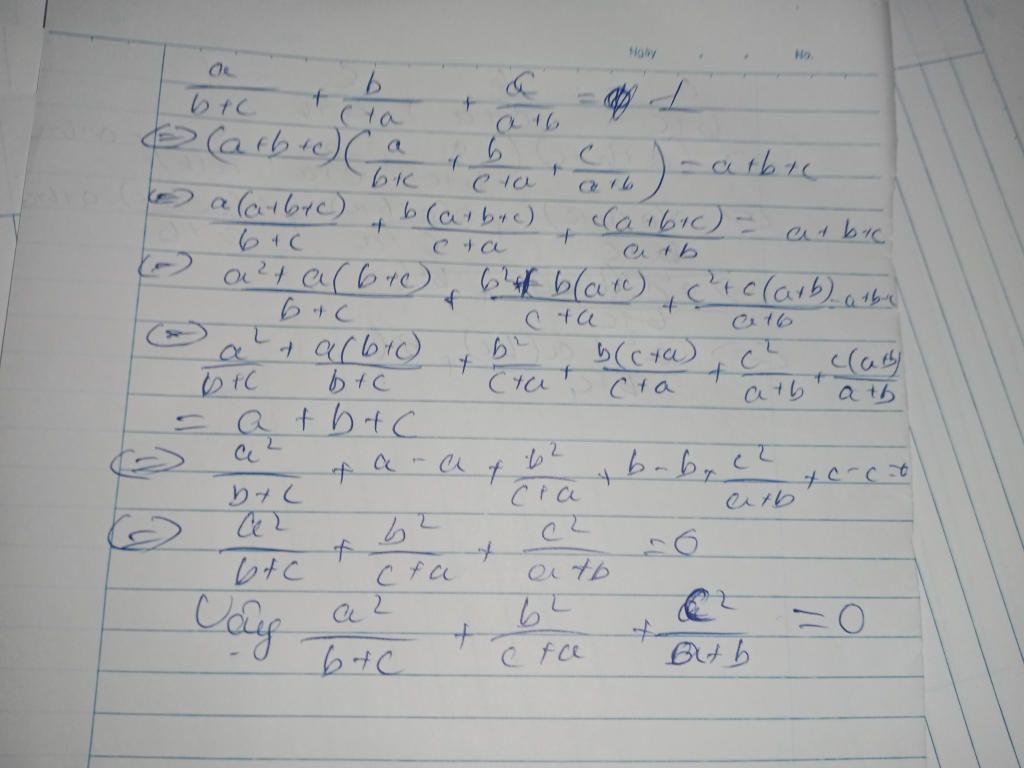 Ngày . . No.
a/(b+c) + b/(c+a) + c/(a+b) = 1
<=> (a+b+c)(a/(b+c) + b/(c+a) + c/(a+b)) = a+b+c
<=> a(a+b+c)/(b+c) + b(a+b+c)/(c+a) + c(a+b+c)/(a+b) = a+b+c
<=> (a²+a(b+c))/(b+c) + (b²+b(a+c))/(c+a) + (c²+c(a+b))/(a+b) = a+b+c
<=> a²/(b+c) + a(b+c)/(b+c) + b²/(c+a) + b(c+a)/(c+a) + c²/(a+b) + c(a+b)/(a+b)
= a+b+c
<=> a²/(b+c) + a-a + b²/(c+a) + b-b + c²/(a+b) + c-c = 0
<=> a²/(b+c) + b²/(c+a) + c²/(a+b) = 0
Vậy a²/(b+c) + b²/(c+a) + c²/(a+b) = 0